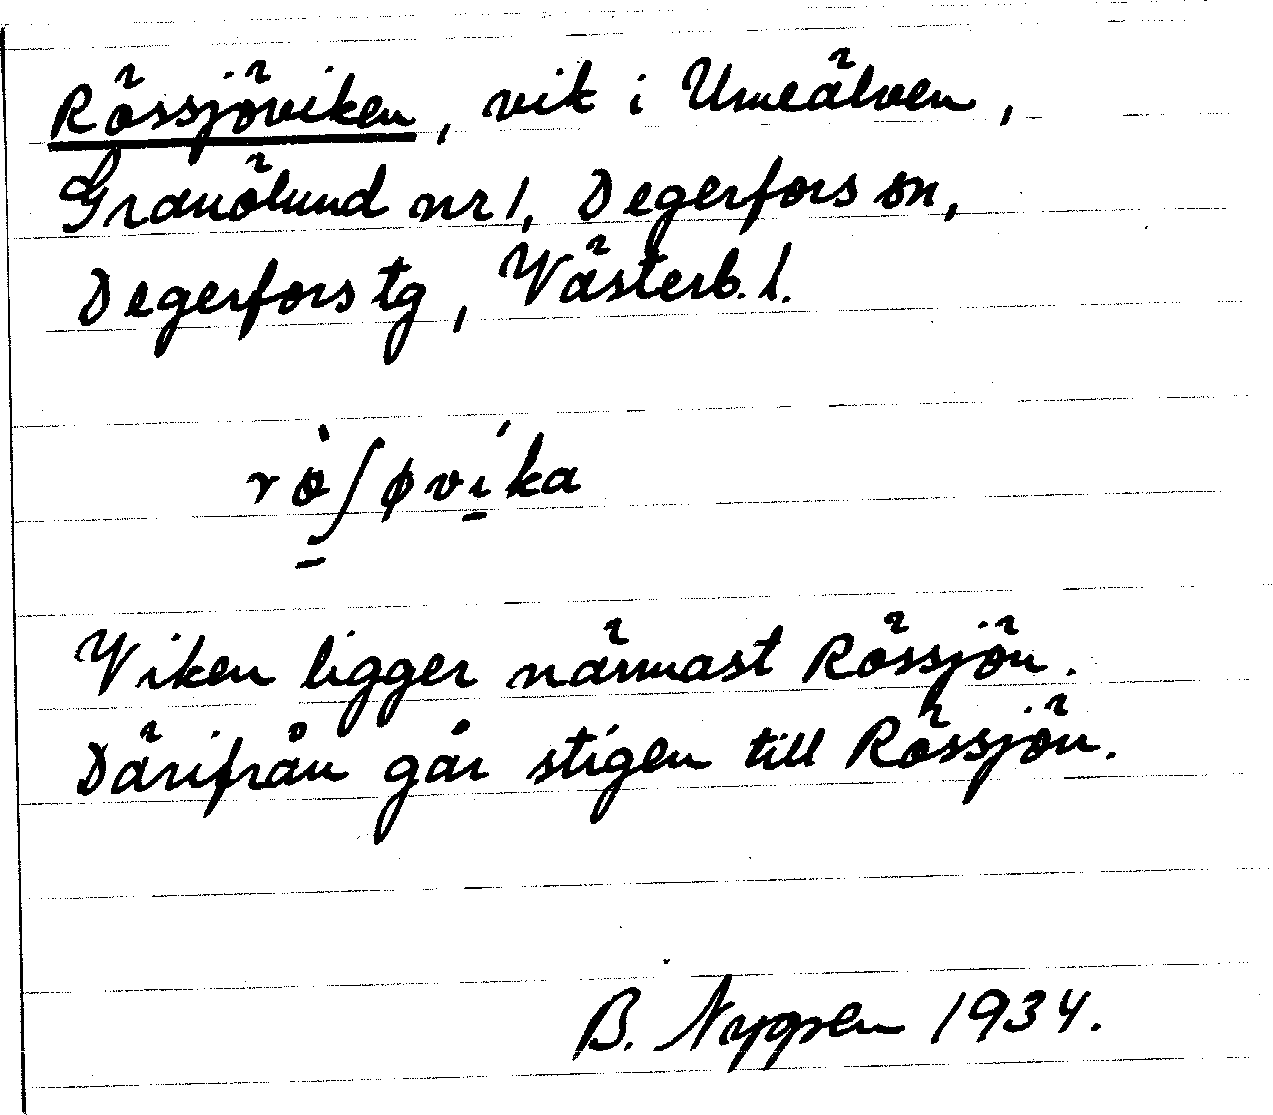 Rössjöviken, vik i Umeälven,
Granölund nr 1, Degerfors sn,
Degerfors tg, Västerb. l.
rò̱ʃøví̱ka
Viken ligger närmast Rössjön.
Därifrån går stigen till Rössjön.
B. Nygren 1934.